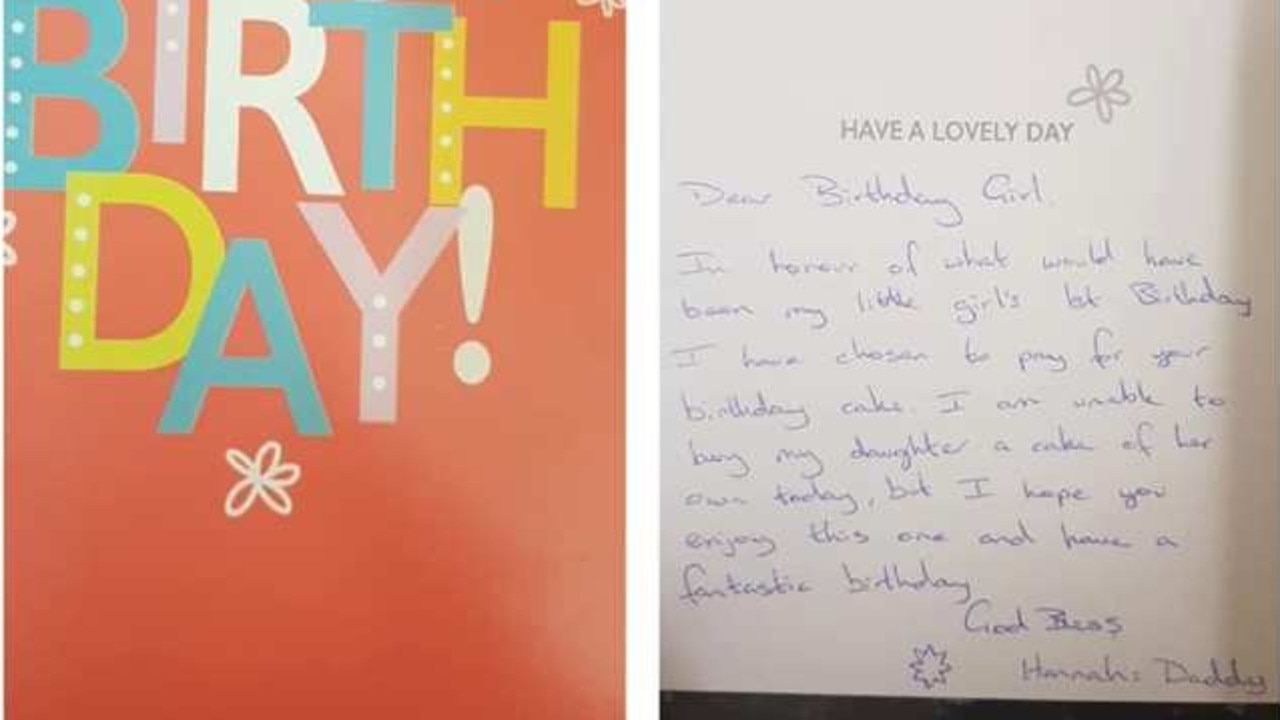 BIRTH
DAY!
HAVE A LOVELY DAY
Dear Birthday Girl.
In honour of what would have
been my little girl's 1st Birthday
I have chosen to pay for your
birthday cake. I am unable to
buy my daughter a cake of her
own today, but I hope you
enjoy this one and have a
fantastic birthday
God Bless
Hannah's Daddy